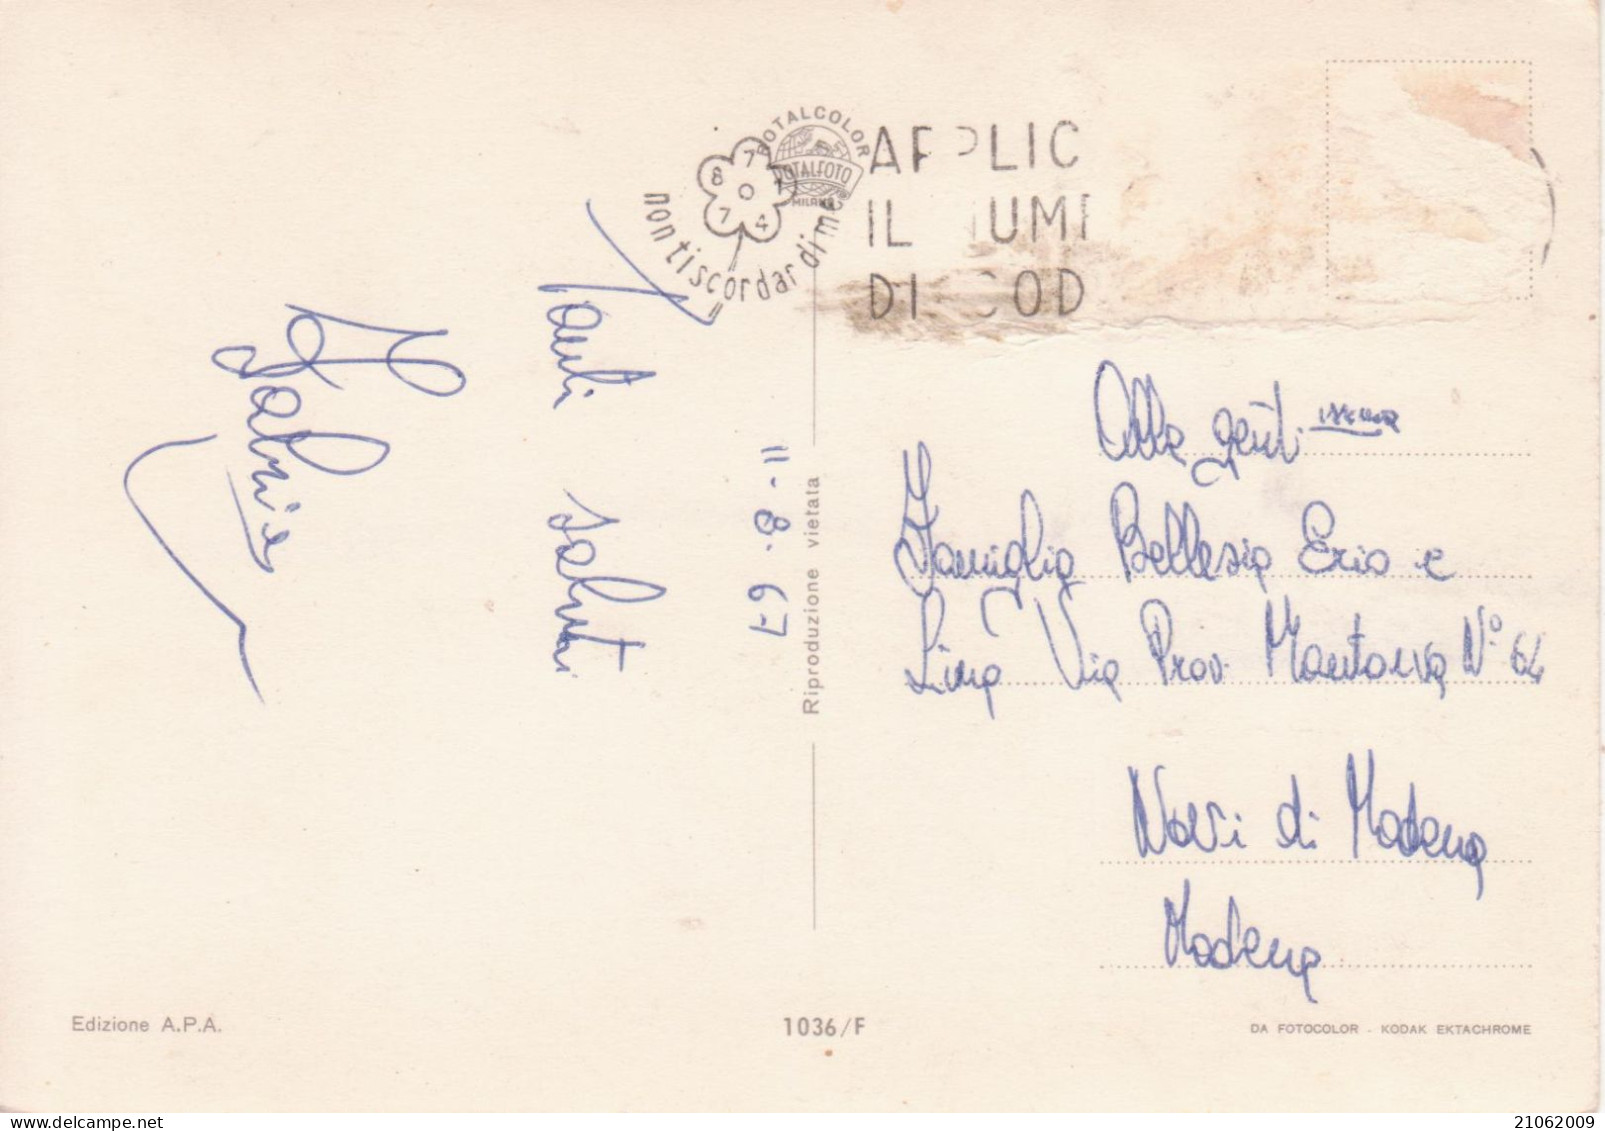 ROTALCOLOR
ROTALFOTO
MILANO
8 7 1 4 7 0
non ti scordar di me
APPLIC
IL NUM
DI COD
11-8-67
Tanti saluti
Fabrizia
Riproduzione vietata
Alla gent.issima
Famiglia Bellesia Erio e
Lina Via Prov. Mantova N° 64
Novi di Modena
Modena
Edizione A.P.A.
1036/F
DA FOTOCOLOR - KODAK EKTACHROME
21062009